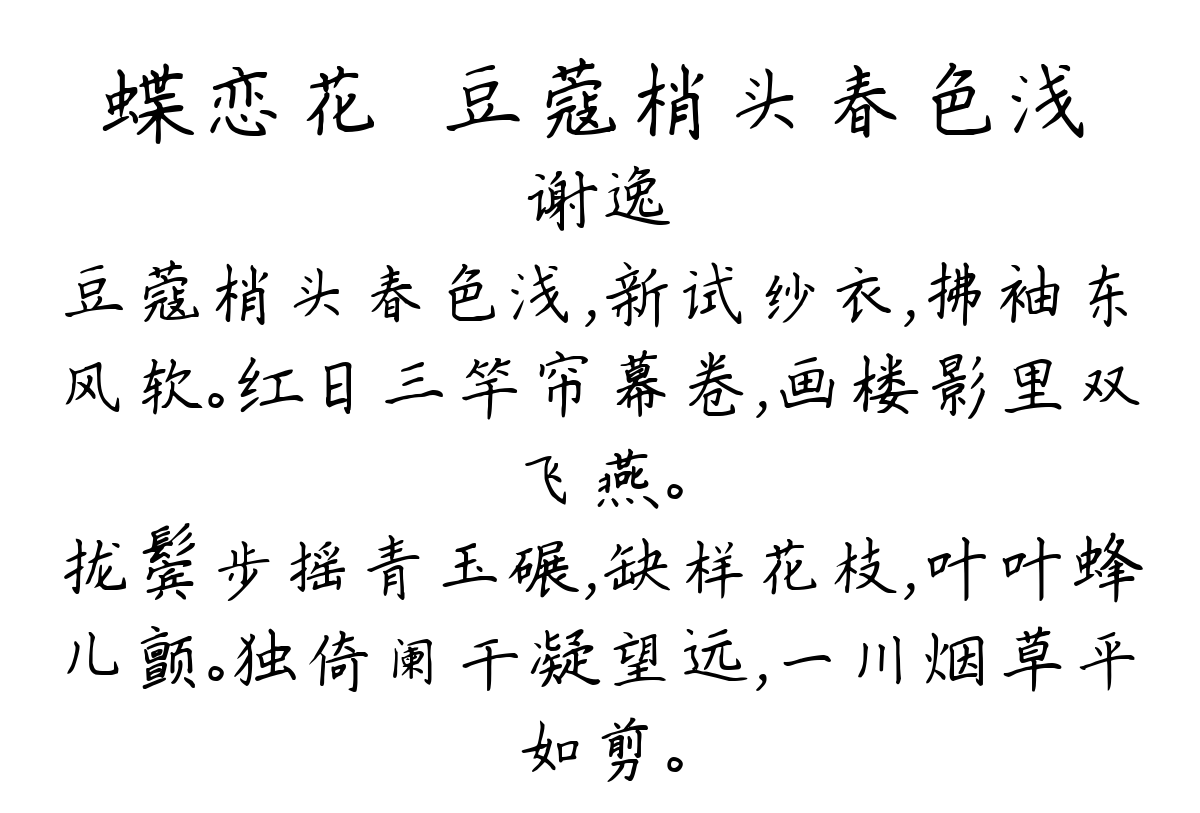 蝶恋花 豆蔻梢头春色浅
谢逸
豆蔻梢头春色浅,新试纱衣,拂袖东
风软。红日三竿帘幕卷,画楼影里双
飞燕。
拢鬓步摇青玉碾,缺样花枝,叶叶蜂
儿颤。独倚阑干凝望远,一川烟草平
如剪。